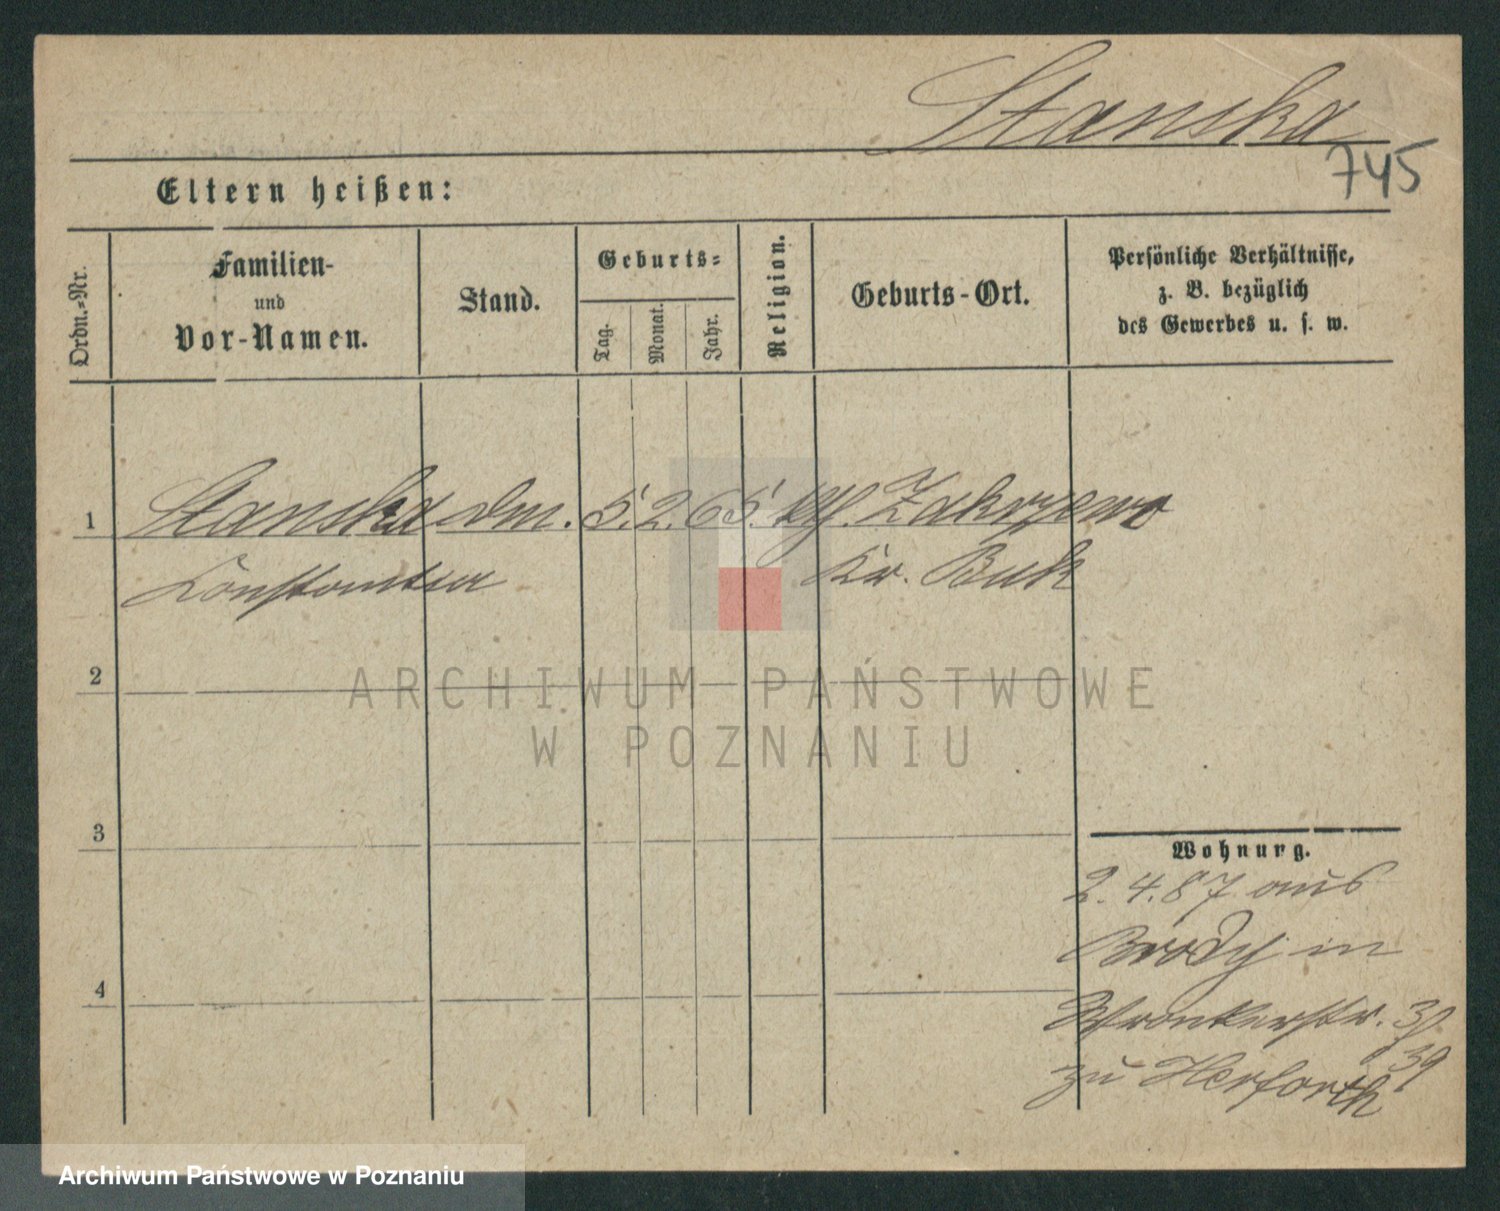 Stanska
745
Eltern heißen:
Ordn.-Nr.
Familien-
und
Vor-Namen.
Stand.
Geburts-
Tag.
Monat.
Jahr.
Religion.
Geburts-Ort.
Persönliche Verhältnisse,
z. B. bezüglich
des Gewerbes u. s. w.
1 Stanska 5. 2. 65. kth. Zakrzewo
Constantia Kr. Buk
2
ARCHIWUM PAŃSTWOWE
W POZNANIU
3
4
Wohnung.
2. 4. 87 aus
Brody in
Wronkerstr.
39
zu Herforth
Archiwum Państwowe w Poznaniu